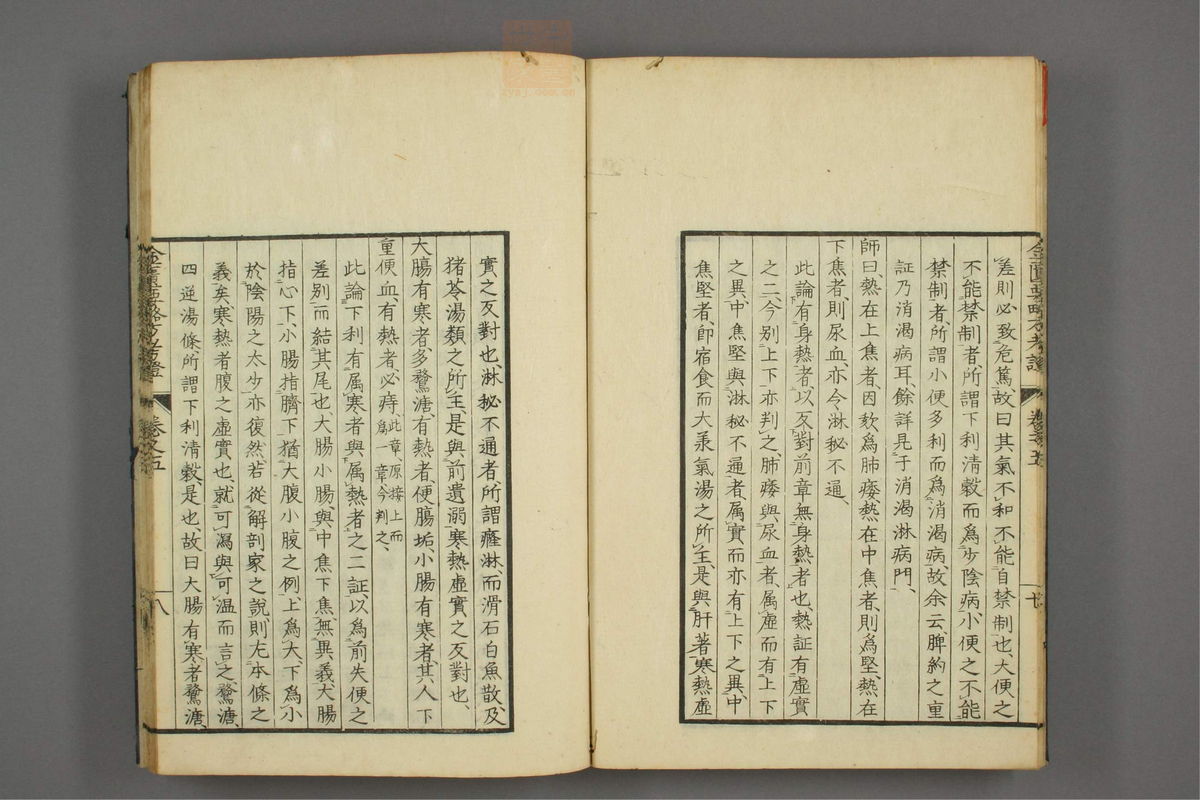 差則必致危篤故曰其氣不和不能自禁制也、大便之
不能禁制者、所謂下利清穀而爲少陰病、小便之不能
禁制者、所謂小便多利而爲消渴病、故余云、脾約之重
証乃消渴病耳、餘詳見于消渴淋病門、
師曰熱在上焦者、因欬爲肺痿、熱在中焦者、則爲堅、熱在
下焦者、則尿血、亦令淋秘不通、
此論有身熱者、以反對前章無身熱者也、熱証有虛實
之二、今別上下亦判之、肺痿與尿血者、属虛而有上下
之異、中焦堅與淋秘不通者、属實而亦有上下之異、中
焦堅者、即宿食而大承氣湯之所主、是與肝著寒熱虛
實之反對也、淋秘不通者所謂癃淋、而滑石白魚散、及
猪苓湯類之所主、是與前遺溺寒熱虛實之反對也、
大膓有寒者、多鶩溏、有熱者、便膓垢、小膓有寒者、其人下
重便血、有熱者、必痔、此章、原接上而爲一章、今判之、
此論下利有属寒者與属熱者之二証、以爲前失便之
差別、而結其尾也、大膓小膓、與中焦下焦、無異義、大膓
指心下、小膓指臍下、猶大腹小腹之例、上爲大、下爲小
於陰陽之太少亦復然、若從解剖家之說、則尢本條之
義矣、寒熱者腹之虛實也、就可濕與可温而言之、鶩溏、
四逆湯條所謂下利清穀、是也、故曰大膓有寒者鶩溏、
金匱要略方考證
卷之五
八